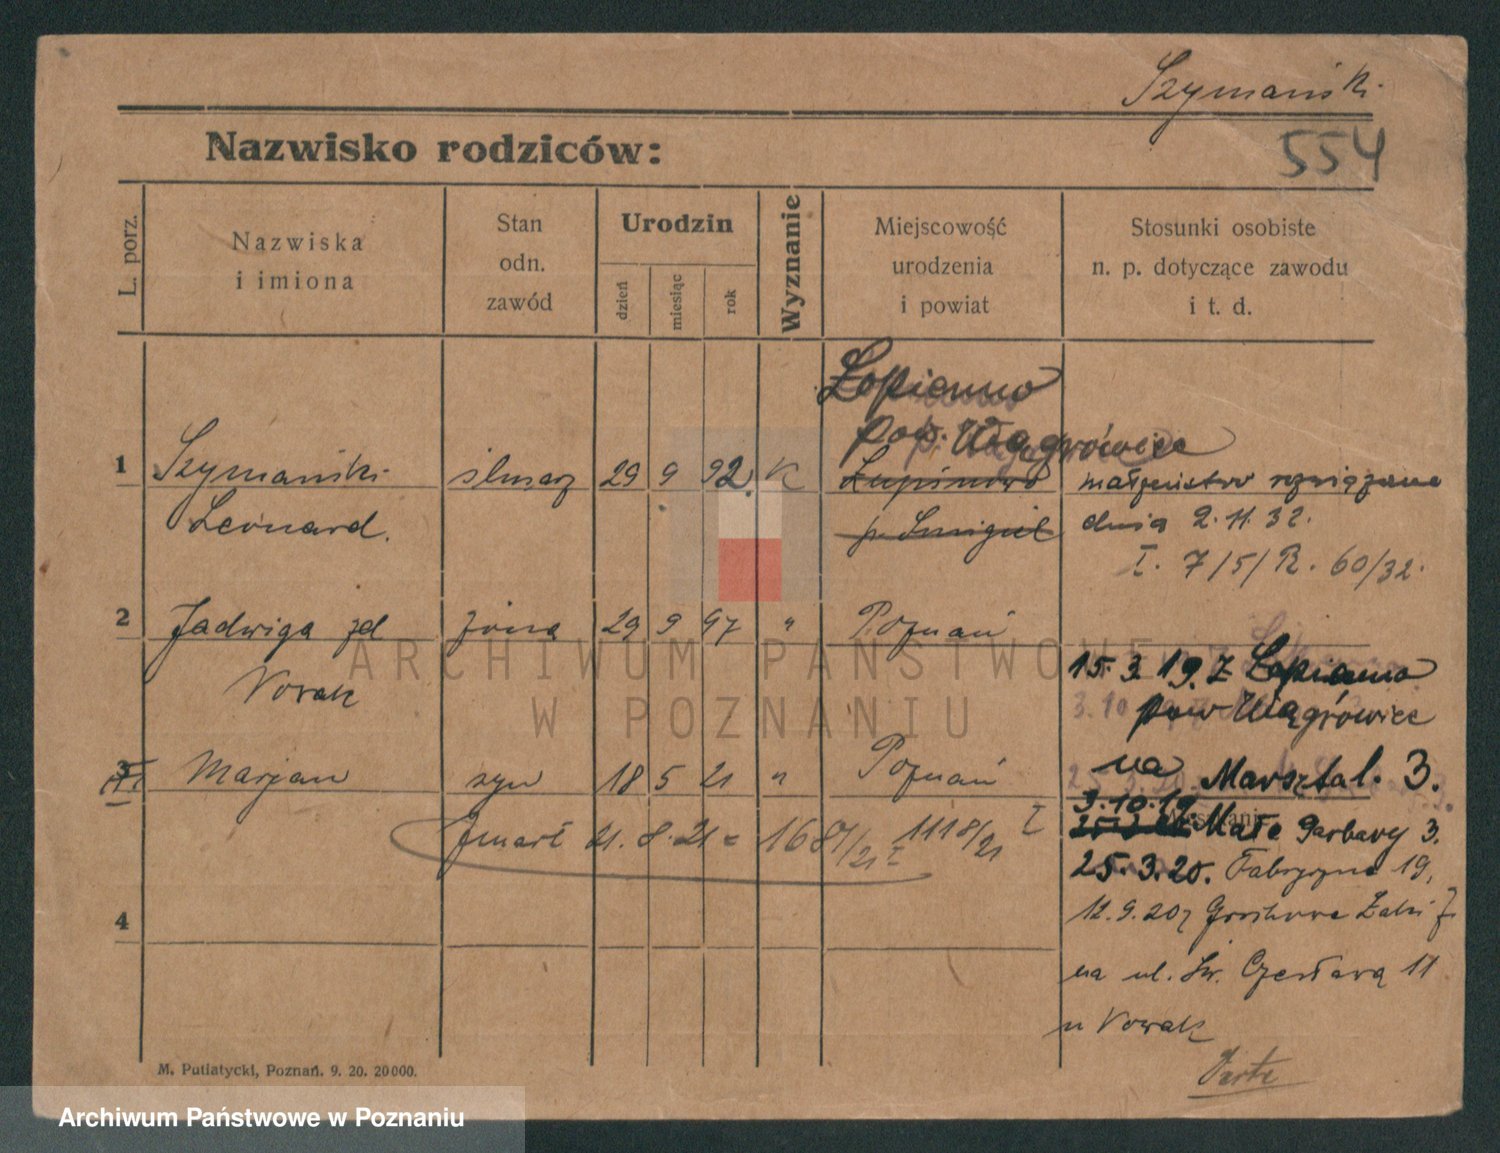 Szymański.
554
Nazwisko rodziców:
L. porz.
Nazwiska
i imiona
Stan
odn.
zawód
Urodzin
dzień
miesiąc
rok
Wyznanie
Miejscowość
urodzenia
i powiat
Stosunki osobiste
n. p. dotyczące zawodu
i t. d.
Łopienno
pow. Wągrówiec
1 Szymański ślusarz 29 9 92. K
Leonard.
małżeństwo rozwiązane
dnia 2.11.32.
I. 7/5/R. 60/32.
2 Jadwiga zd żona 29 9 97 " Poznań
Nowak
15.3 19. z Łopienna
pow Wągrówiec
3 Marjan syn 18 5 21 " Poznań
na Marsztal. 3.
3.10.19. Małe Garbary 3.
Zmarł 21.8.21 = 1118/21 I
25.3.20. Fabryczna 19.
4
12.9.20
na ul. Św. Czesława 11
u Nowak
Verte
M. Putiatycki, Poznań. 9. 20. 20000.
ARCHIWUM PAŃSTWOWE
W POZNANIU
Archiwum Państwowe w Poznaniu